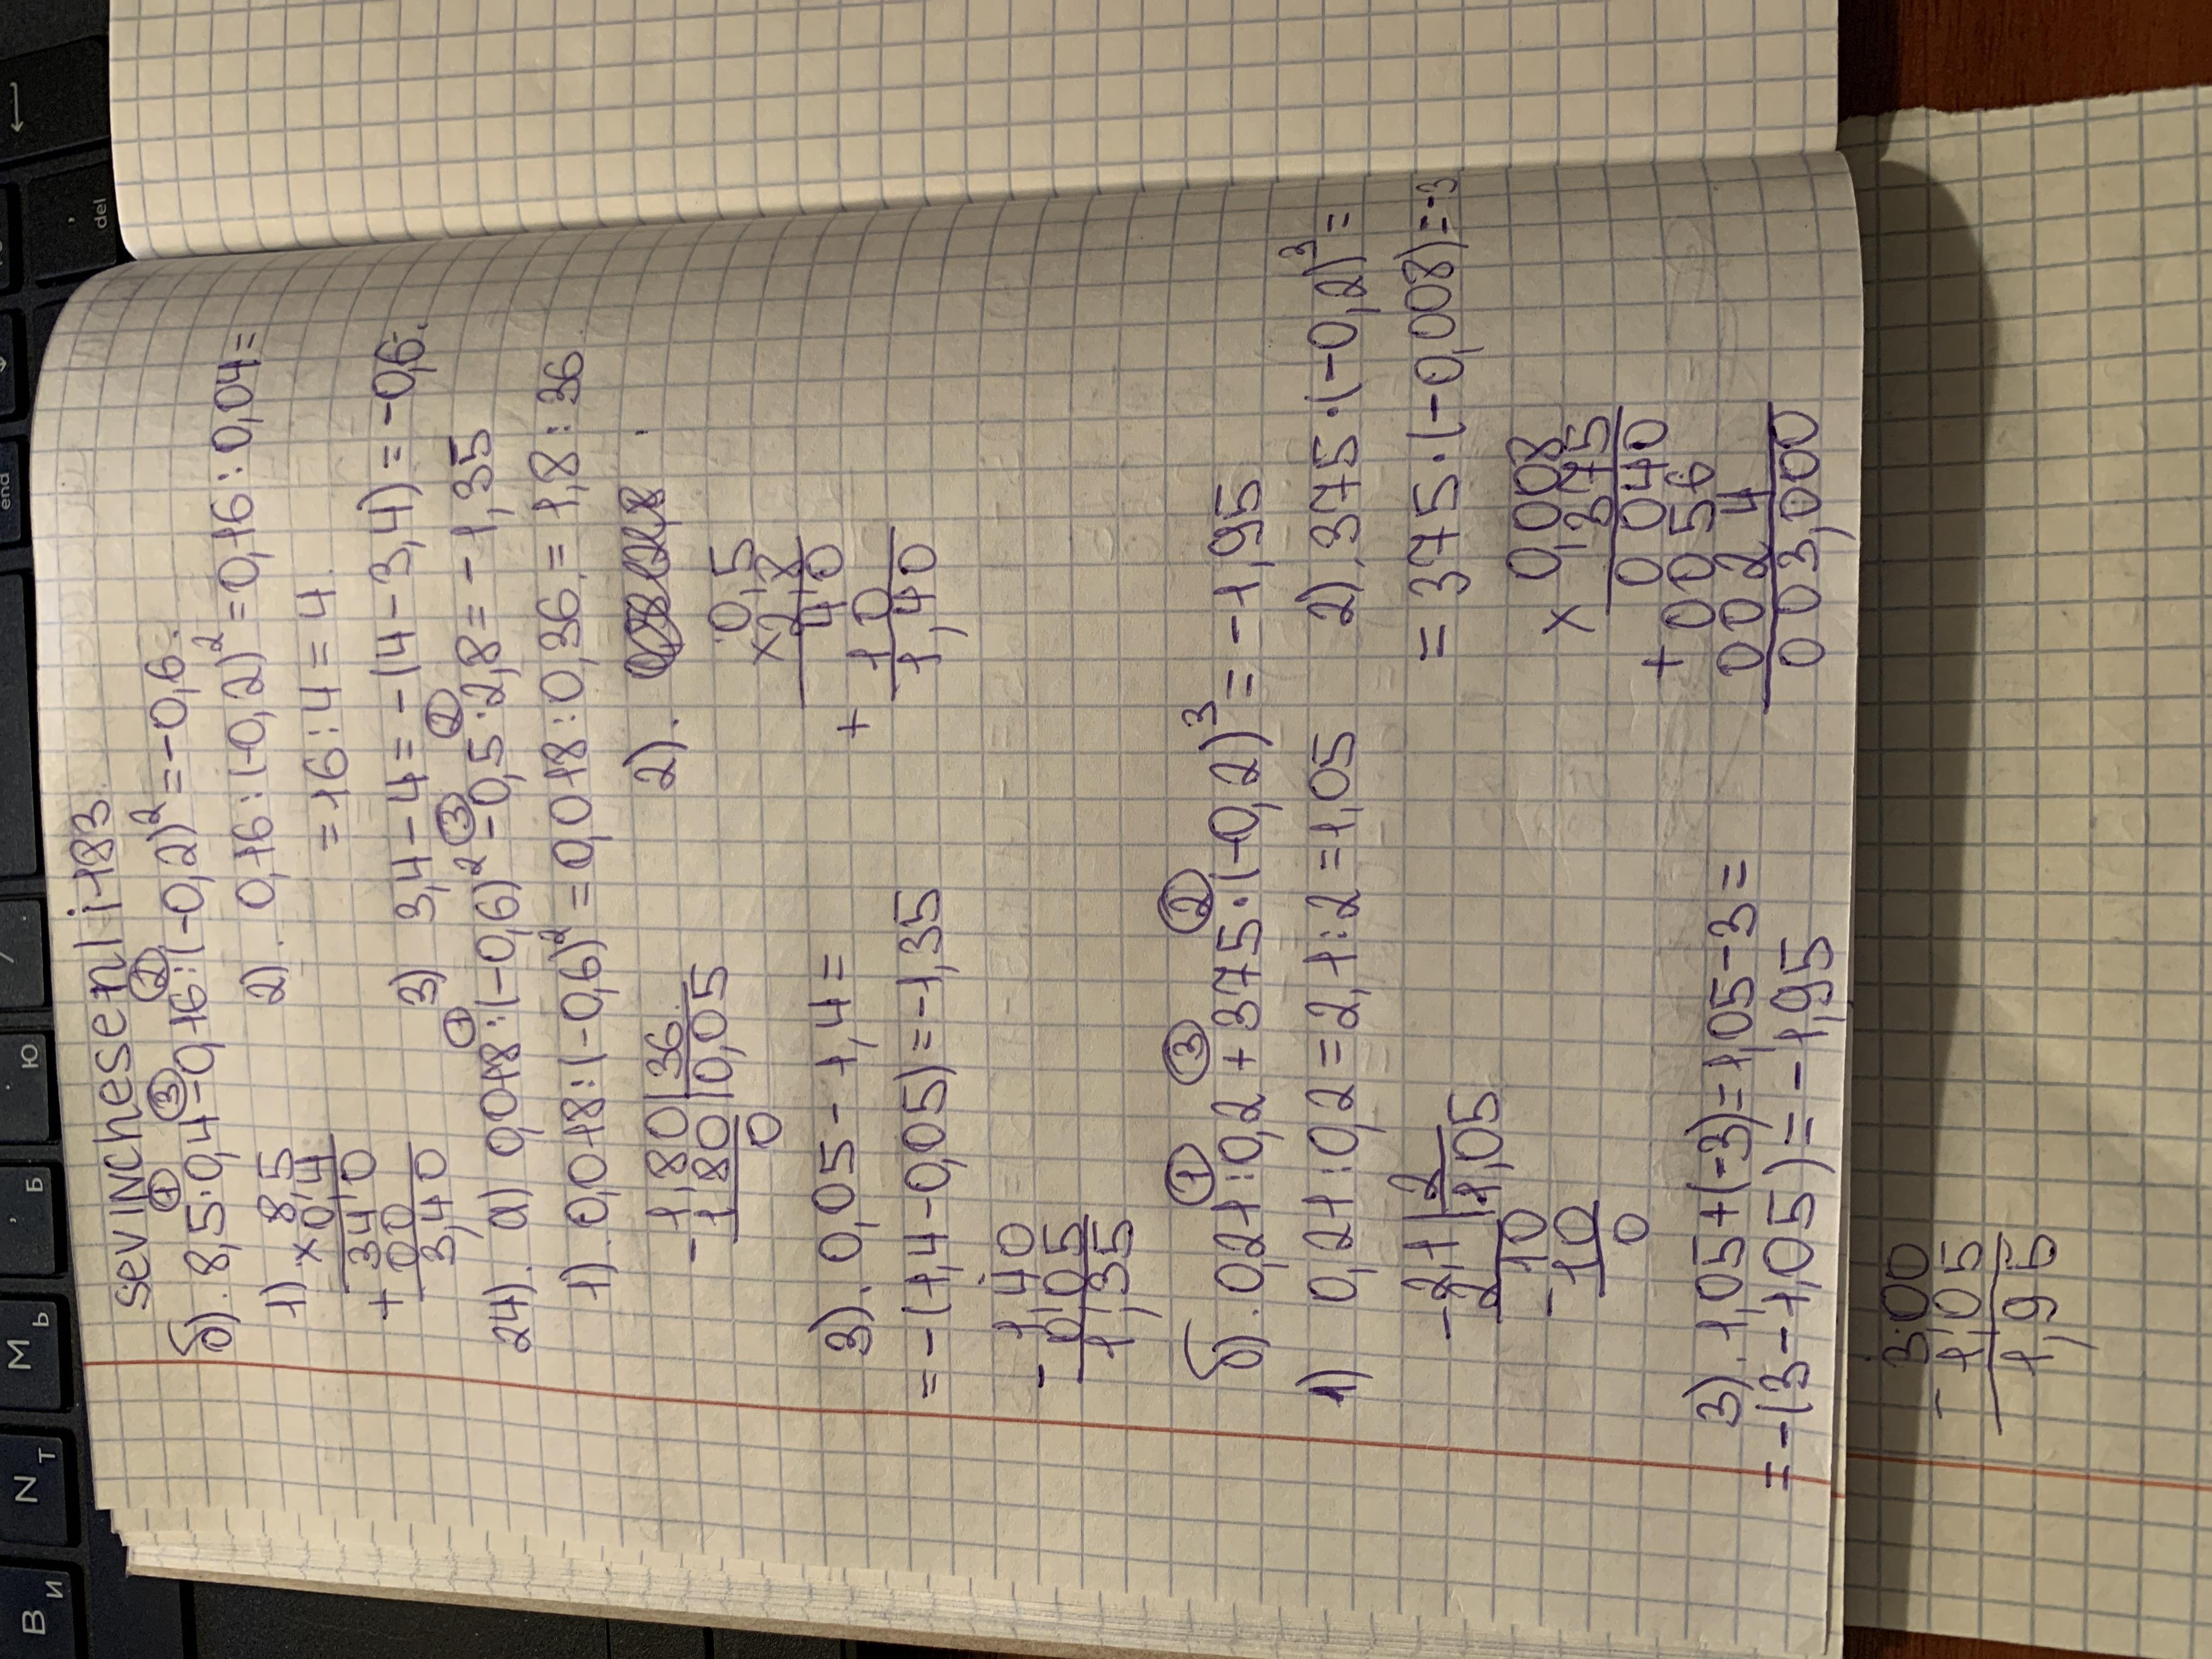 sevINChesenli-183
① ③ ②
б). 8,5·0,4-0,16:(-0,2)²=-0,6.
1). 8,5
×0,4
340
+ 00
3,40
2). 0,16:(-0,2)²=0,16:0,04=
=16:4=4.
3) 3,4-4=-(4-3,4)=-0,6.
① ③ ②
24). а) 0,018:(-0,6)²-0,5:2,8=-1,35
1). 0,018:(-0,6)²=0,018:0,36=1,8:36
-1,80|36
180|0,05
0
2).
0,5
×2,8
40
+ 10
1,40
3). 0,05-1,4=
=-(1,4-0,05)=-1,35
-1,40
0,05
1,35
① ③ ②
б). 0,21:0,2+375·(-0,2)³=-1,95
1) 0,21:0,2=2,1:2=1,05
-2,1|2
2|1,05
-10
10
0
2). 375·(-0,2)³=
=375·(-0,008)=-3
× 0,008
375
0040
+ 0056
0024
003,000
3). 1,05+(-3)=1,05-3=
=-(3-1,05)=-1,95
-3,00
1,05
1,95
В И
N Т
М Ь
, Б
. Ю
/
end
, del
←